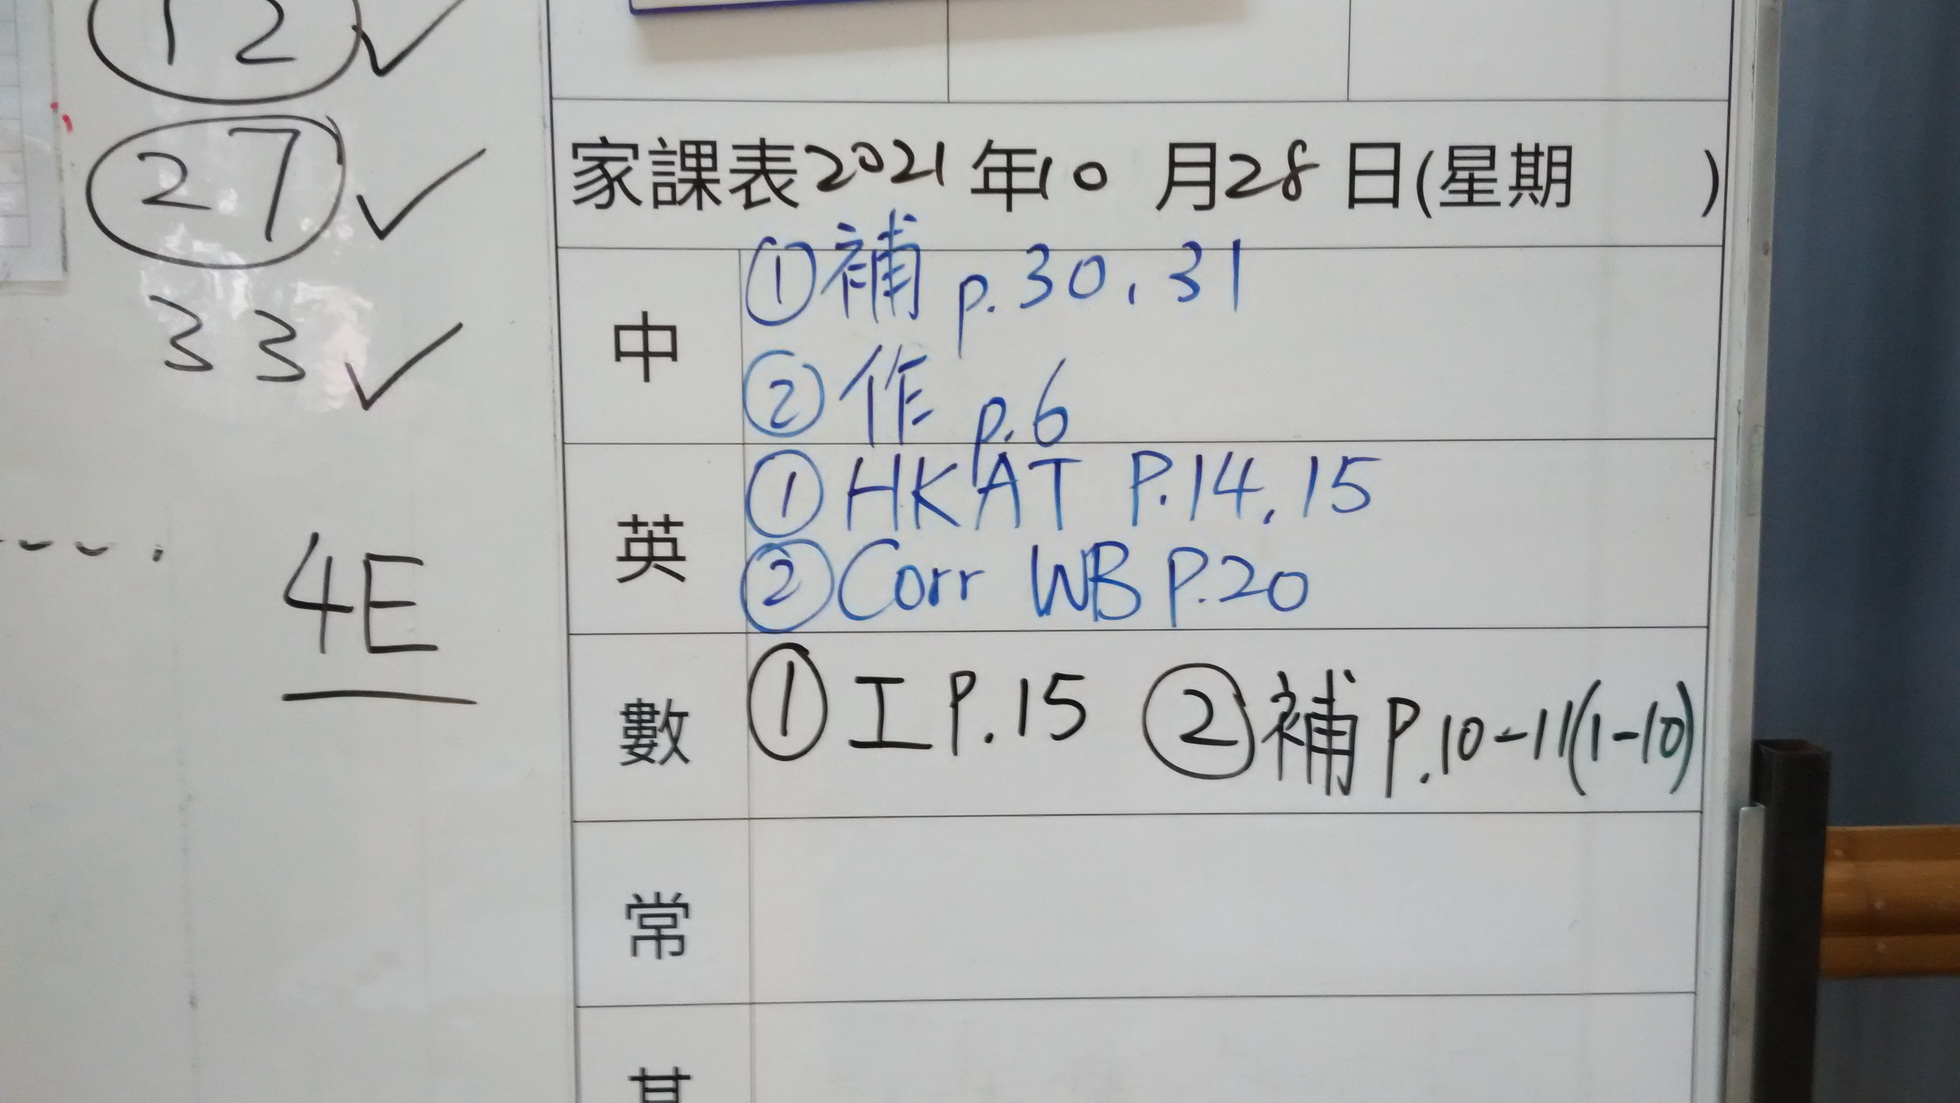 12 ✓
27 ✓
33 ✓
4E
家課表2021年10月28日(星期 )
中
①補 p.30, 31
②作 p.6
英
①HKAT P.14, 15
②Corr WB P.20
數
①工P.15 ②補P.10-11(1-10)
常